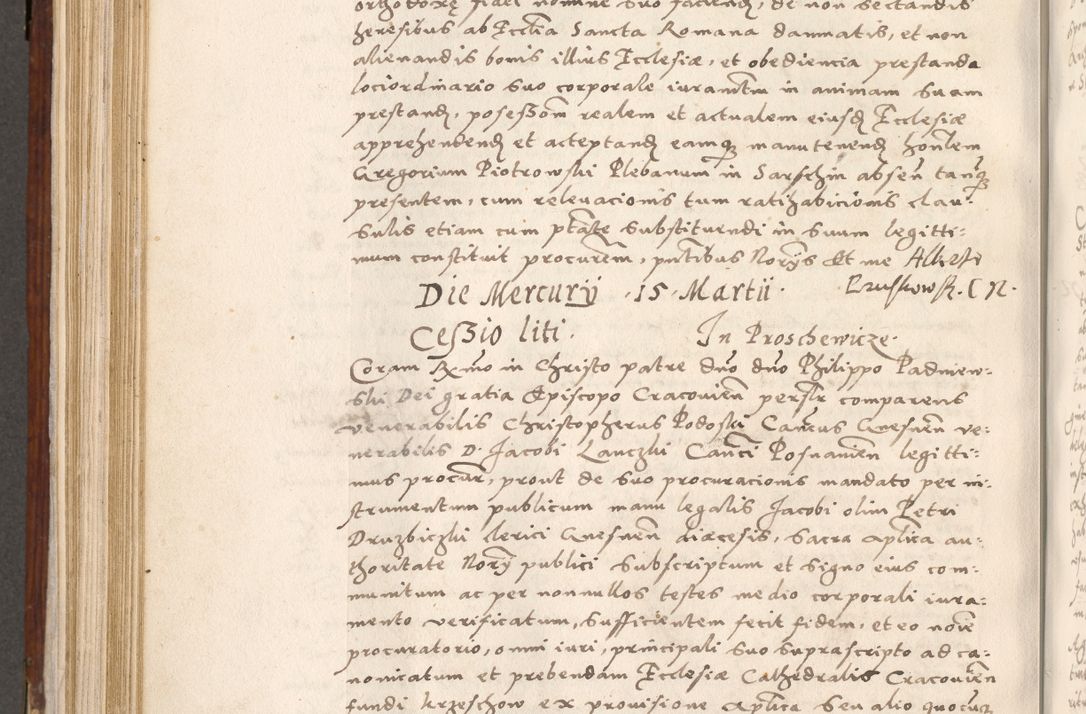 orthodoxę fidei nomine suo faciend, de non sectandis
heresibus ab Ecclia Sancta Romana damnatis, et non
alienandis bonis illius Ecclesiæ, et obediencia prestanda
lociordinario suo corporale iuramtm in animam suam
prestand, posesßom realem et actualem eiusd Ecclesiæ
apprehendend et acceptand eamq manutenend honlem
Gregorium Piotrowski Plebanum in Sarschin absen tanq
presentem, cum relevacionis tum ratihabicionis clau:
sulis etiam cum ptate substituendi in suum legitti:
mum constituit procurem, pntibus Norys Et me Alberto
Die Mercury 15 Martii. Bruskowsk. C N.
Ceßio liti. In Proschewicze.
Coram Rmo in Christo patre dno dno Philippo Padniew:
ski Dei gratia Episcopo Cracovien personlr comparens
venerabilis Christopherus Podoski Cancus Gnesnen ve:
nerabilis D. Jacobi Lanczki Canci Posnanien legitti:
mus procur, prout de suo procuracionis mandato per in:
strumentum publicum manu legalis Jacobi olim Petri
Druzbiczki clerici Gnesnen diæcesis, sacra aplica au:
thoritate Nory publici subscriptum et signo eius com:
munitum ac per nonnullos testes medio corporali iura:
mento verificatum, sufficientem fecit fidem, et eo noie
procuratorio, omni iuri, principali suo suprascripto ad ca:
nonicatum et prebendam Ecclesiæ Cathedralis Cracovien
fundi Krzeschow ex provisione Aplica seu alio quocuq